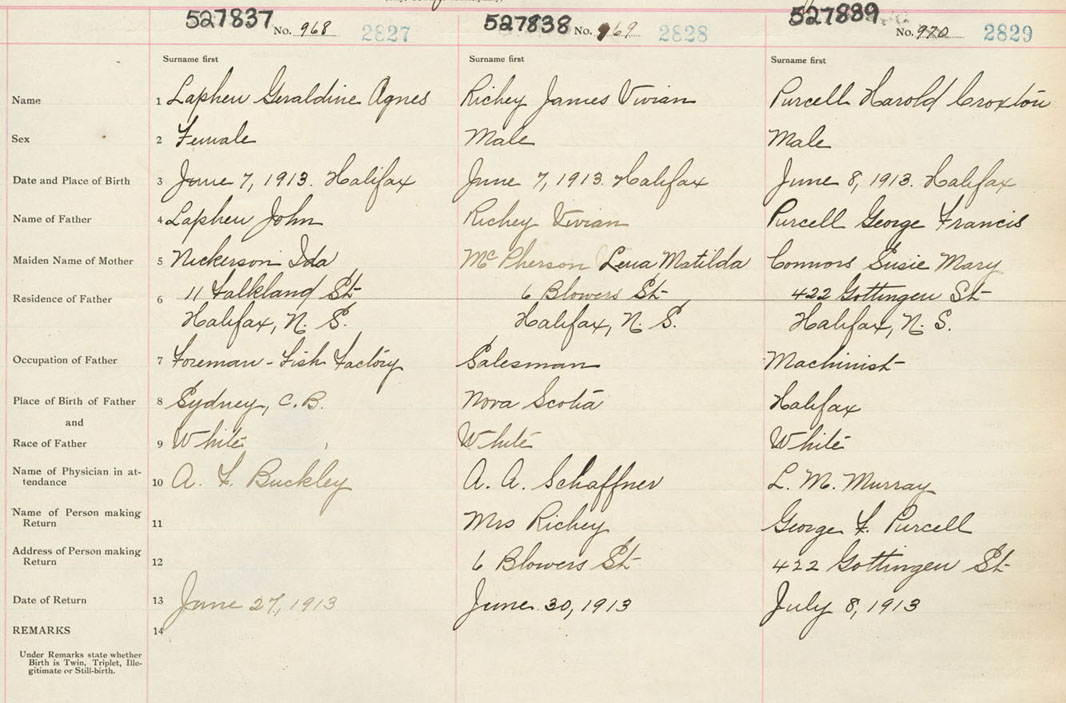 527837 No. 968 2827 527838 No. 969 2828 527839 No. 970 2829
Surname first Surname first Surname first
Name 1 Laphen Geraldine Agnes Richey James Vivian Purcell Harold Croxton
Sex 2 Female Male Male
Date and Place of Birth 3 June 7, 1913. Halifax June 7, 1913. Halifax June 8, 1913. Halifax
Name of Father 4 Laphen John Richey Vivian Purcell George Francis
Maiden Name of Mother 5 Nickerson Ida McPherson Lena Matilda Connors Susie Mary
Residence of Father 6 11 Falkland St 6 Blowers St 422 Gottingen St
Halifax, N. S. Halifax, N. S. Halifax, N. S.
Occupation of Father 7 Foreman - Fish Factory Salesman Machinist
Place of Birth of Father 8 Sydney, C.B. Nova Scotia Halifax
and
Race of Father 9 White White White
Name of Physician in at-
tendance 10 A. F. Buckley A. A. Schaffner L. M. Murray
Name of Person making
Return 11 Mrs Richey George F. Purcell
Address of Person making
Return 12 6 Blowers St 422 Gottingen St
Date of Return 13 June 27, 1913 June 30, 1913 July 8, 1913
REMARKS 14
Under Remarks state whether
Birth is Twin, Triplet, Ille-
gitimate or Still-birth.